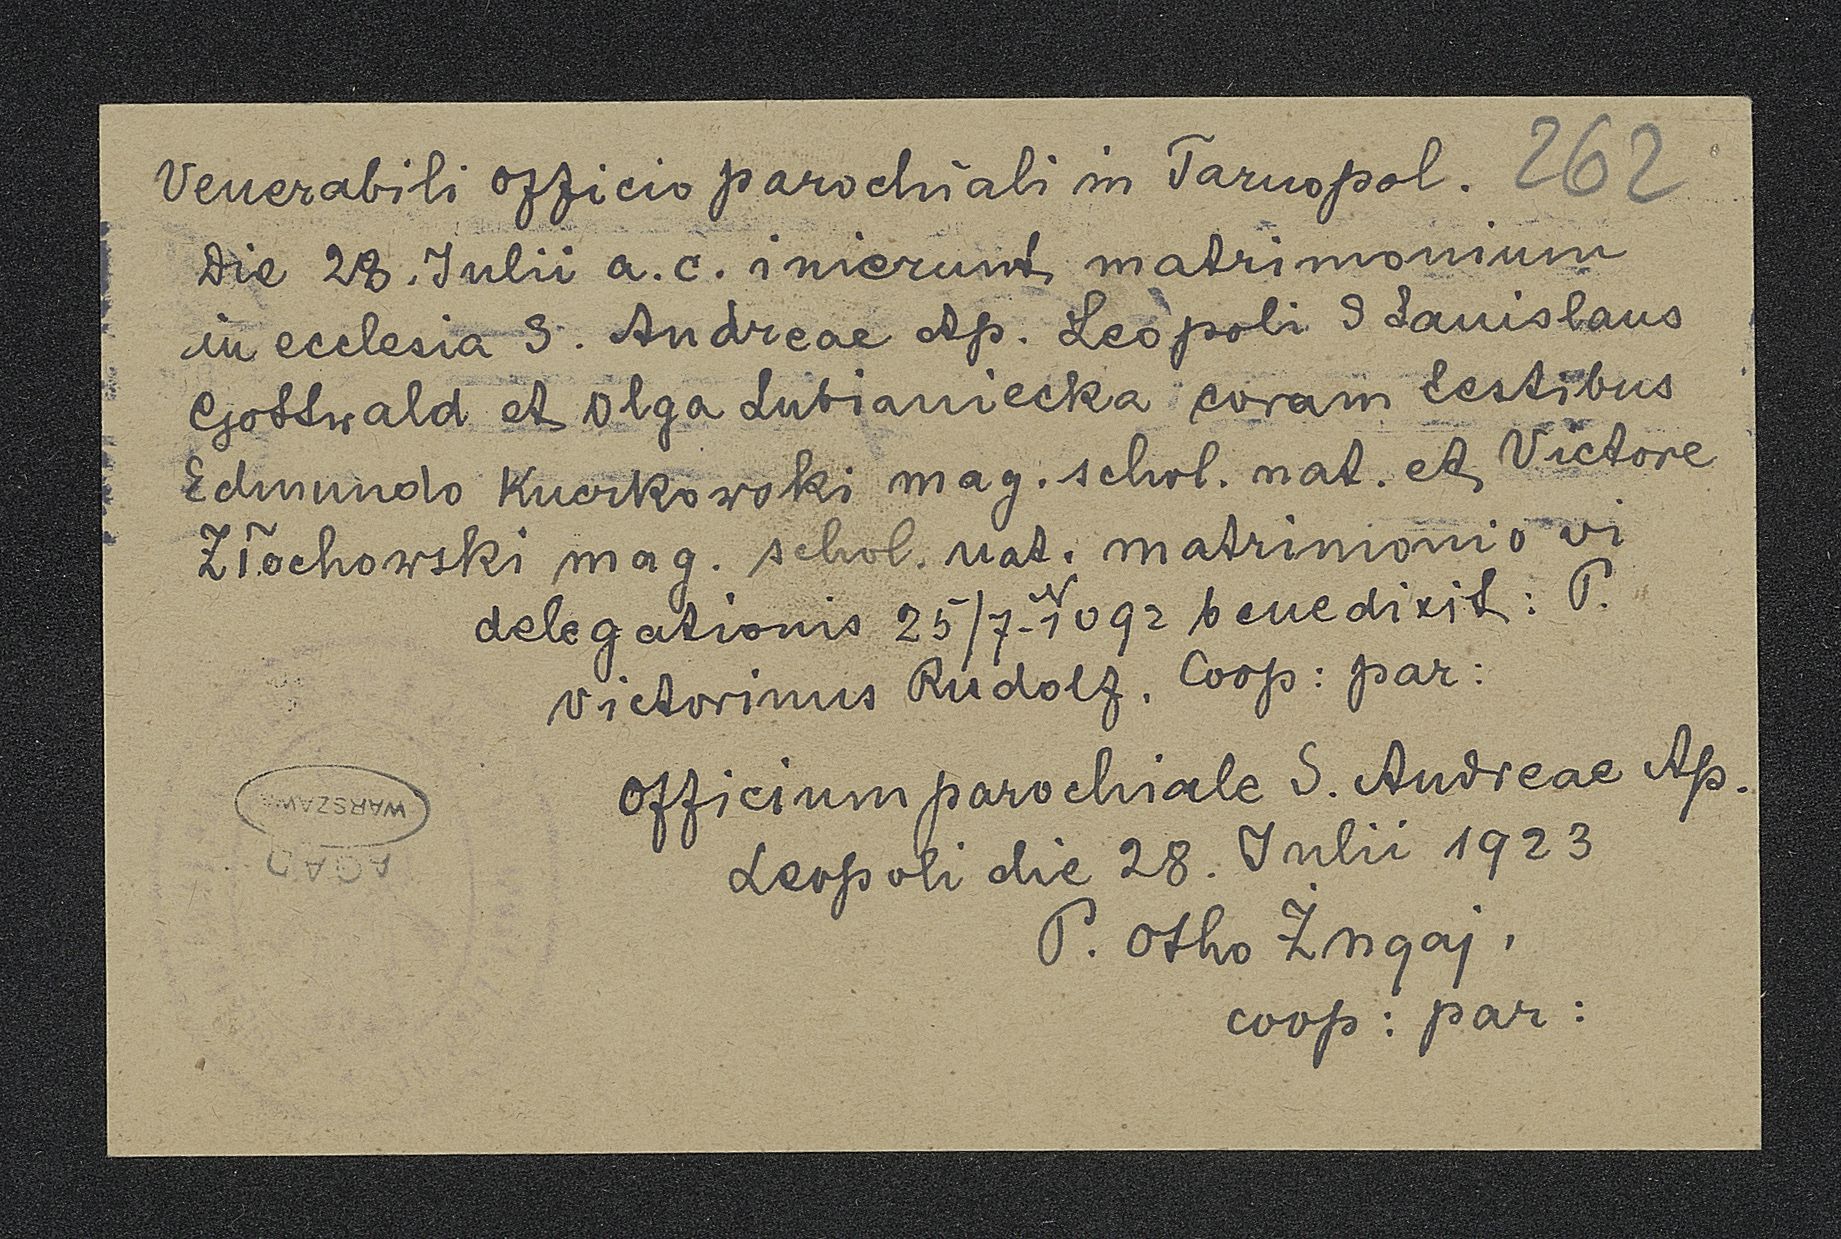 262
Venerabili officio parochiali in Tarnopol.
Die 28. Julii a. c. inierunt matrimonium
in ecclesia S. Andreae Ap. Leopoli Stanislaus
Gottwald et Olga Lubianiecka coram testibus
Edmundo Kuczkowski mag. schol. nat. et Victore
Złochowski mag. schol. nat. matrimonio vi
delegationis 25/7 - N 1092 benedixit: P.
Victorinus Rudolf. Coop: par:
Officium parochiale S. Andreae Ap.
Leopoli die 28. Julii 1923
P. Otho
coop: par:
WARSZAWA
AGAD